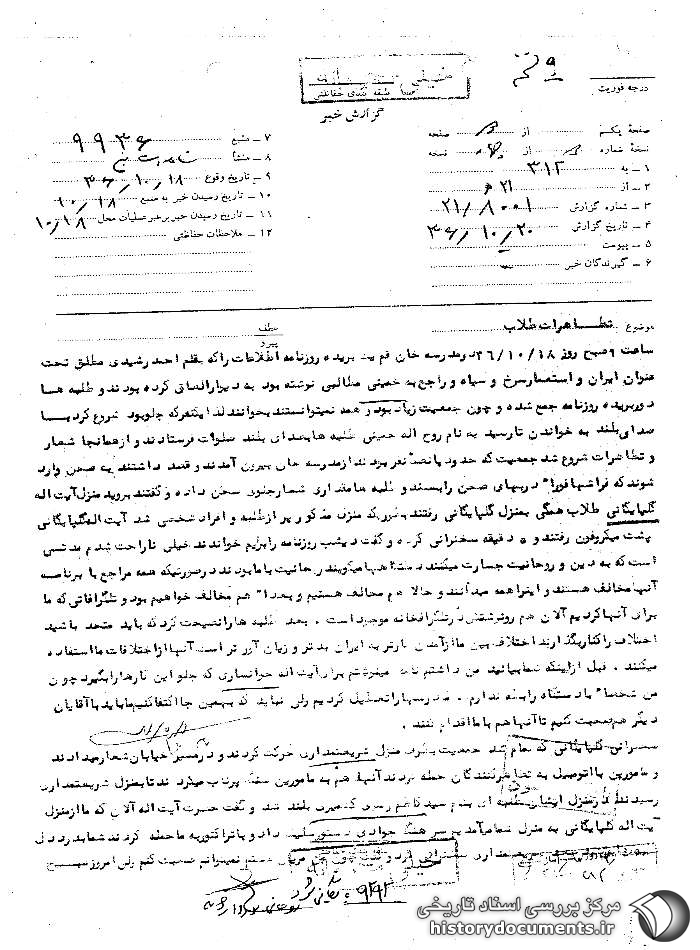 خیلی محرمانه
طبقه بندی حفاظتی
گزارش خبر
درجه فوریت
صفحه یکم از صفحه
نسخه شماره از نسخه
۱ ـ به ۳۱۲
۲ ـ از ۲۱
۳ ـ شماره گزارش ۲۱/۸۰۰۱
۴ ـ تاریخ گزارش ۳۶/۱۰/۲۰
۵ ـ پیوست
۶ ـ گیرندگان خبر
۷ ـ منبع ۹۹۳۶
۸ ـ منشأ
۹ ـ تاریخ وقوع ۳۶/۱۰/۱۸
۱۰ ـ تاریخ رسیدن خبر به منبع ۱۰/۱۸
۱۱ ـ تاریخ رسیدن خبر به رهبر عملیات محل ۱۰/۱۸
۱۲ ـ ملاحظات حفاظتی
موضوع تظاهرات طلاب
عطف
پیرو
ساعت ۹ صبح روز ۳۶/۱۰/۱۸ در مدرسه خان قم بریده روزنامه اطلاعات را که بقلم احمد رشیدی مطلق تحت
عنوان ایران و استعمار سرخ و سیاه و راجع به خمینی مطالبی نوشته بود به دیوار الصاق کرده بودند و طلبه ها
دور بریده روزنامه جمع شده و چون جمعیت زیاد بود و همه نمیتوانستند بخوانند لذا یکنفر که جلو بود شروع کرد با
صدای بلند به خواندن تا رسید به نام روح اله خمینی طلبه ها بصدای بلند صلوات فرستادند و از همانجا شعار
و تظاهرات شروع شد جمعیت که حدود پانصد نفر بودند از مدرسه خان بیرون آمدند و قصد داشتند به صحن وارد
شوند که فراشها فوراً دربهای صحن را بستند و طلبه ها مقداری شعار جلوی صحن داده و گفتند بروید منزل آیت اله
گلپایگانی طلاب همگی بمنزل گلپایگانی رفتند بطوریکه منزل مذکور پر از طلبه و افراد شخصی شد آیت اله گلپایگانی
پشت میکروفون رفتند و ۵ دقیقه سخنرانی کرد و گفت دیشب روزنامه را برایم خواندند خیلی ناراحت شدم مدتی
است که به دین و روحانیت جسارت میکنند میگویند روحانیت با ما بودند در صورتیکه همه مراجع با برنامه
آنها مخالف هستند و اینرا همه میدانند و حالا هم مخالف هستیم و بعداً هم مخالف خواهیم بود و تلگرافاتی که ما
برای آنها کردیم الان هم رونوشتش در تلگرافخانه موجود است . بعد طلبه ها را نصیحت کرد که باید متحد باشید
اختلاف را کنار بگذارند اختلاف بین ما از آمدن به ایران بدتر و زیان آورتر است آنها از اختلافات ما استفاده
میکنند . قبل از اینکه شما بیائید من داشتم نامه مینوشتم برای آیت اله خوانساری که جلو این کارها را بگیرد چون
من شخصاً با دستگاه رابطه ندارم . ما درسها را تعطیل کردیم ولی نباید که بهمین جا اکتفا کنیم ما باید با آقایان
دیگر هم صحبت کنیم تا آنها هم با ما اقدام کنند .
سخنرانی گلپایگانی که تمام شد جمعیت بطرف منزل شریعتمداری حرکت کردند و در مسیر خیابان شعار میدادند
و مامورین با اتومبیل به تظاهر کنندگان حمله بردند آنها هم به مامورین سنگ پرتاب میکردند تا بمنزل شریعتمداری
رسیدند در منزل ایشان طلبه ای بنام سید کاظم بلند شد و گفت حضرت آیت اله الان که ما از منزل
آیت اله گلپایگانی به منزل شما میآمدیم سرهنگ جوادی دستور داد و با تراکتور به ما حمله کردند شما به درد دل
شریعتمداری
مرکز بررسی اسناد تاریخی
historydocuments.ir